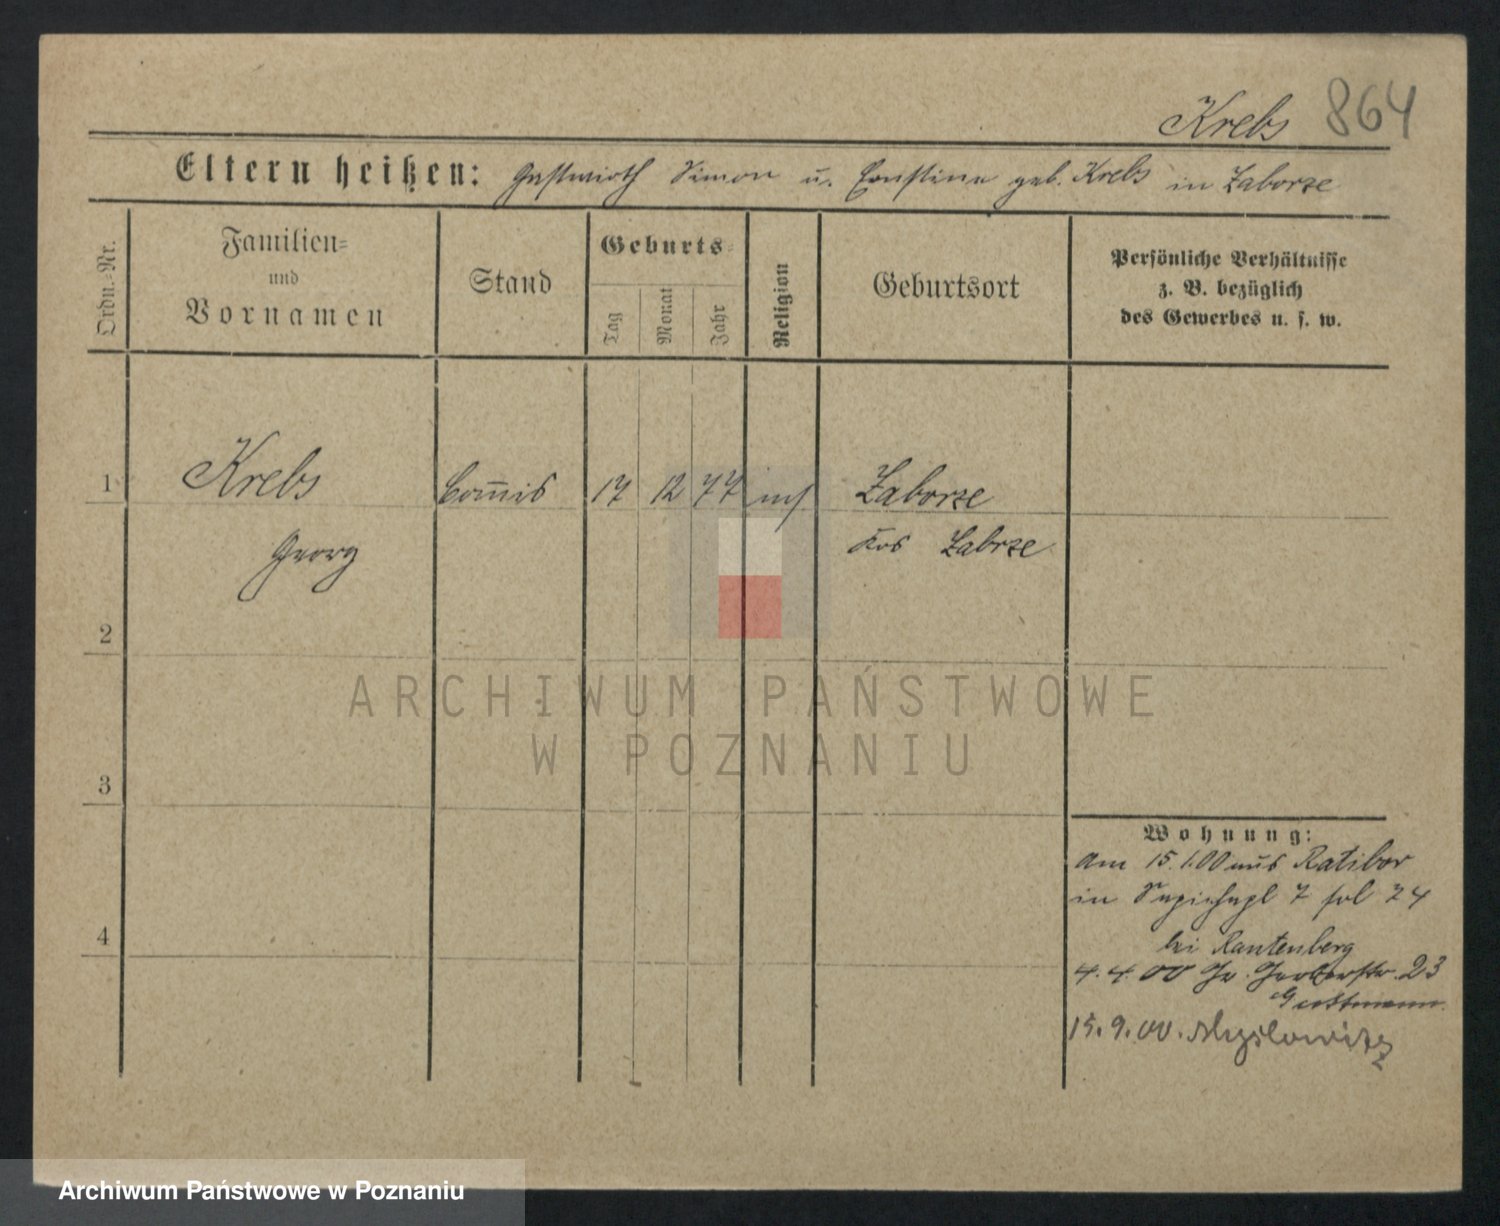 Krebs 864
Eltern heißen: Gastwirth Simon u. Ernstine geb. Krebs in Zaborze
Ordn.=Nr.
Familien=
und
Vornamen
Stand
Geburts=
Tag
Monat
Jahr
Religion
Geburtsort
Persönliche Verhältnisse
z. B. bezüglich
des Gewerbes u. s. w.
1 Krebs Com̅is 17 12 77 mos Zaborze
Georg Krs Zabrze
2
3
4
Wohnung:
am 15.1.00 aus Ratibor
in Sapiehapl 7 fol 74
bei Rantenberg
4.4.00 Gr. Gerberstr. 23
Guttmann
15.9.00. Myslowitz
ARCHIWUM PAŃSTWOWE
W POZNANIU
Archiwum Państwowe w Poznaniu